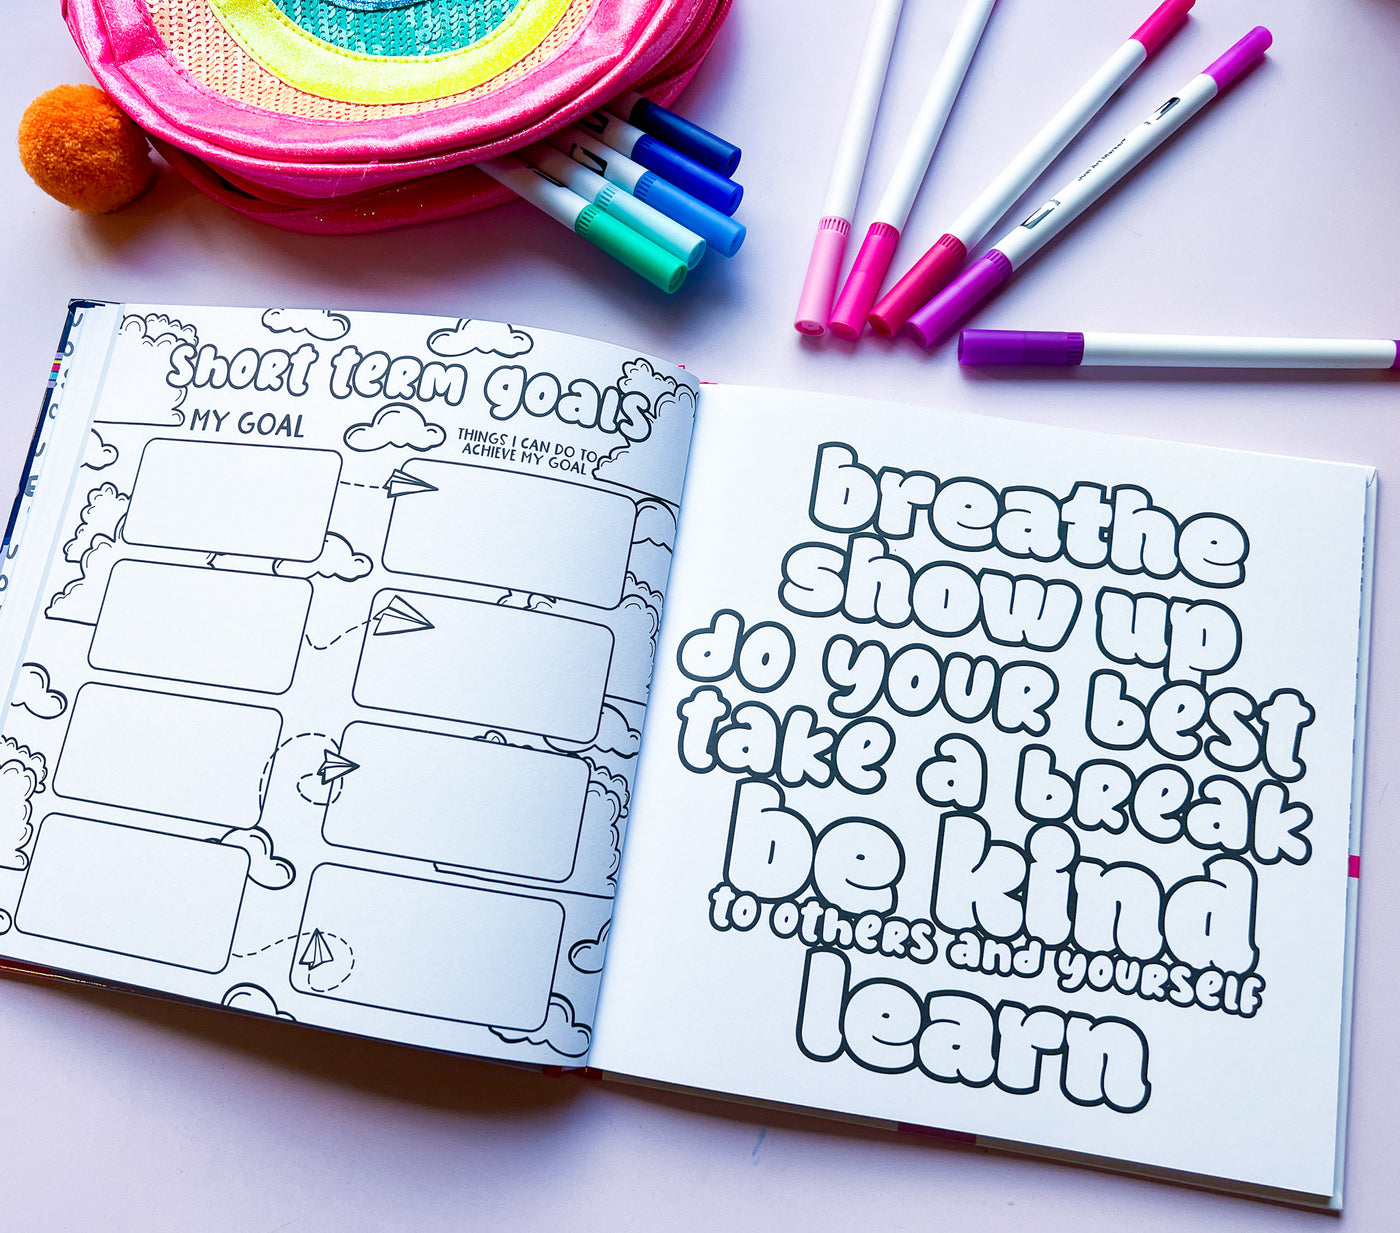 Dual Art Markers
short term goals
MY GOAL
THINGS I CAN DO TO
ACHIEVE MY GOAL
breathe
show up
do your best
take a break
be kind
to others and yourself
learn